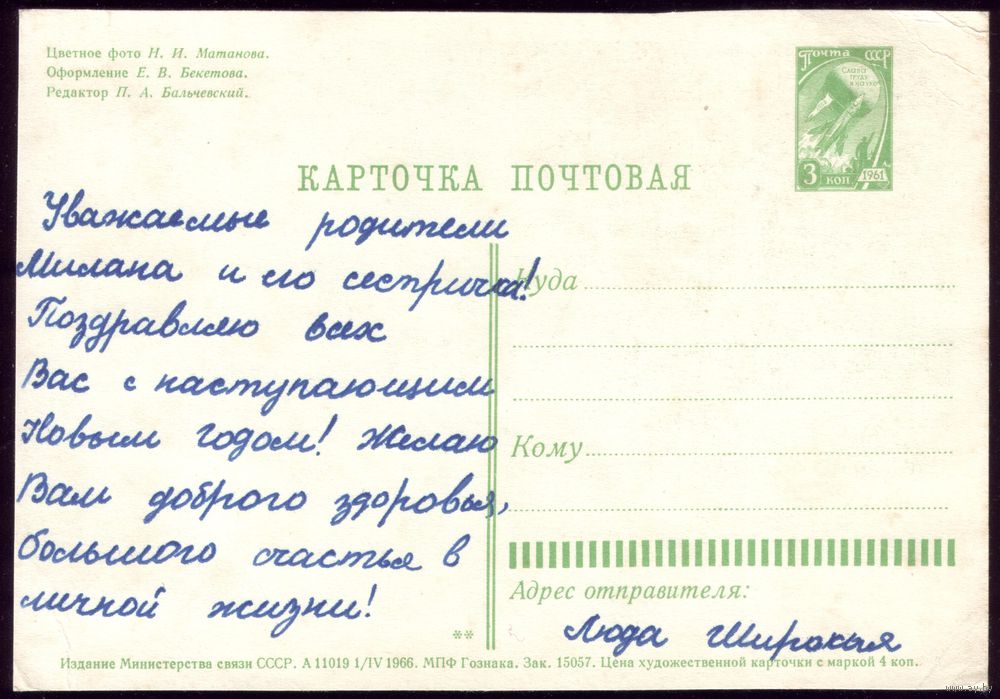 Цветное фото Н. И. Матанова.
Оформление Е. В. Бекетова.
Редактор П. А. Бальчевский.
Почта СССР
Слава
труду
и науке
3 коп.
1961
КАРТОЧКА ПОЧТОВАЯ
Уважаемые родители
Милана и его сестричка!
Поздравляю всех
Вас с наступающим
Новым годом! Желаю
Вам доброго здоровья,
большого счастья в
личной жизни!
Куда
Кому
Адрес отправителя:
Люда Широкая
**
Издание Министерства связи СССР. А 11019 1/IV 1966. МПФ Гознака. Зак. 15057. Цена художественной карточки с маркой 4 коп.
www.ay.by